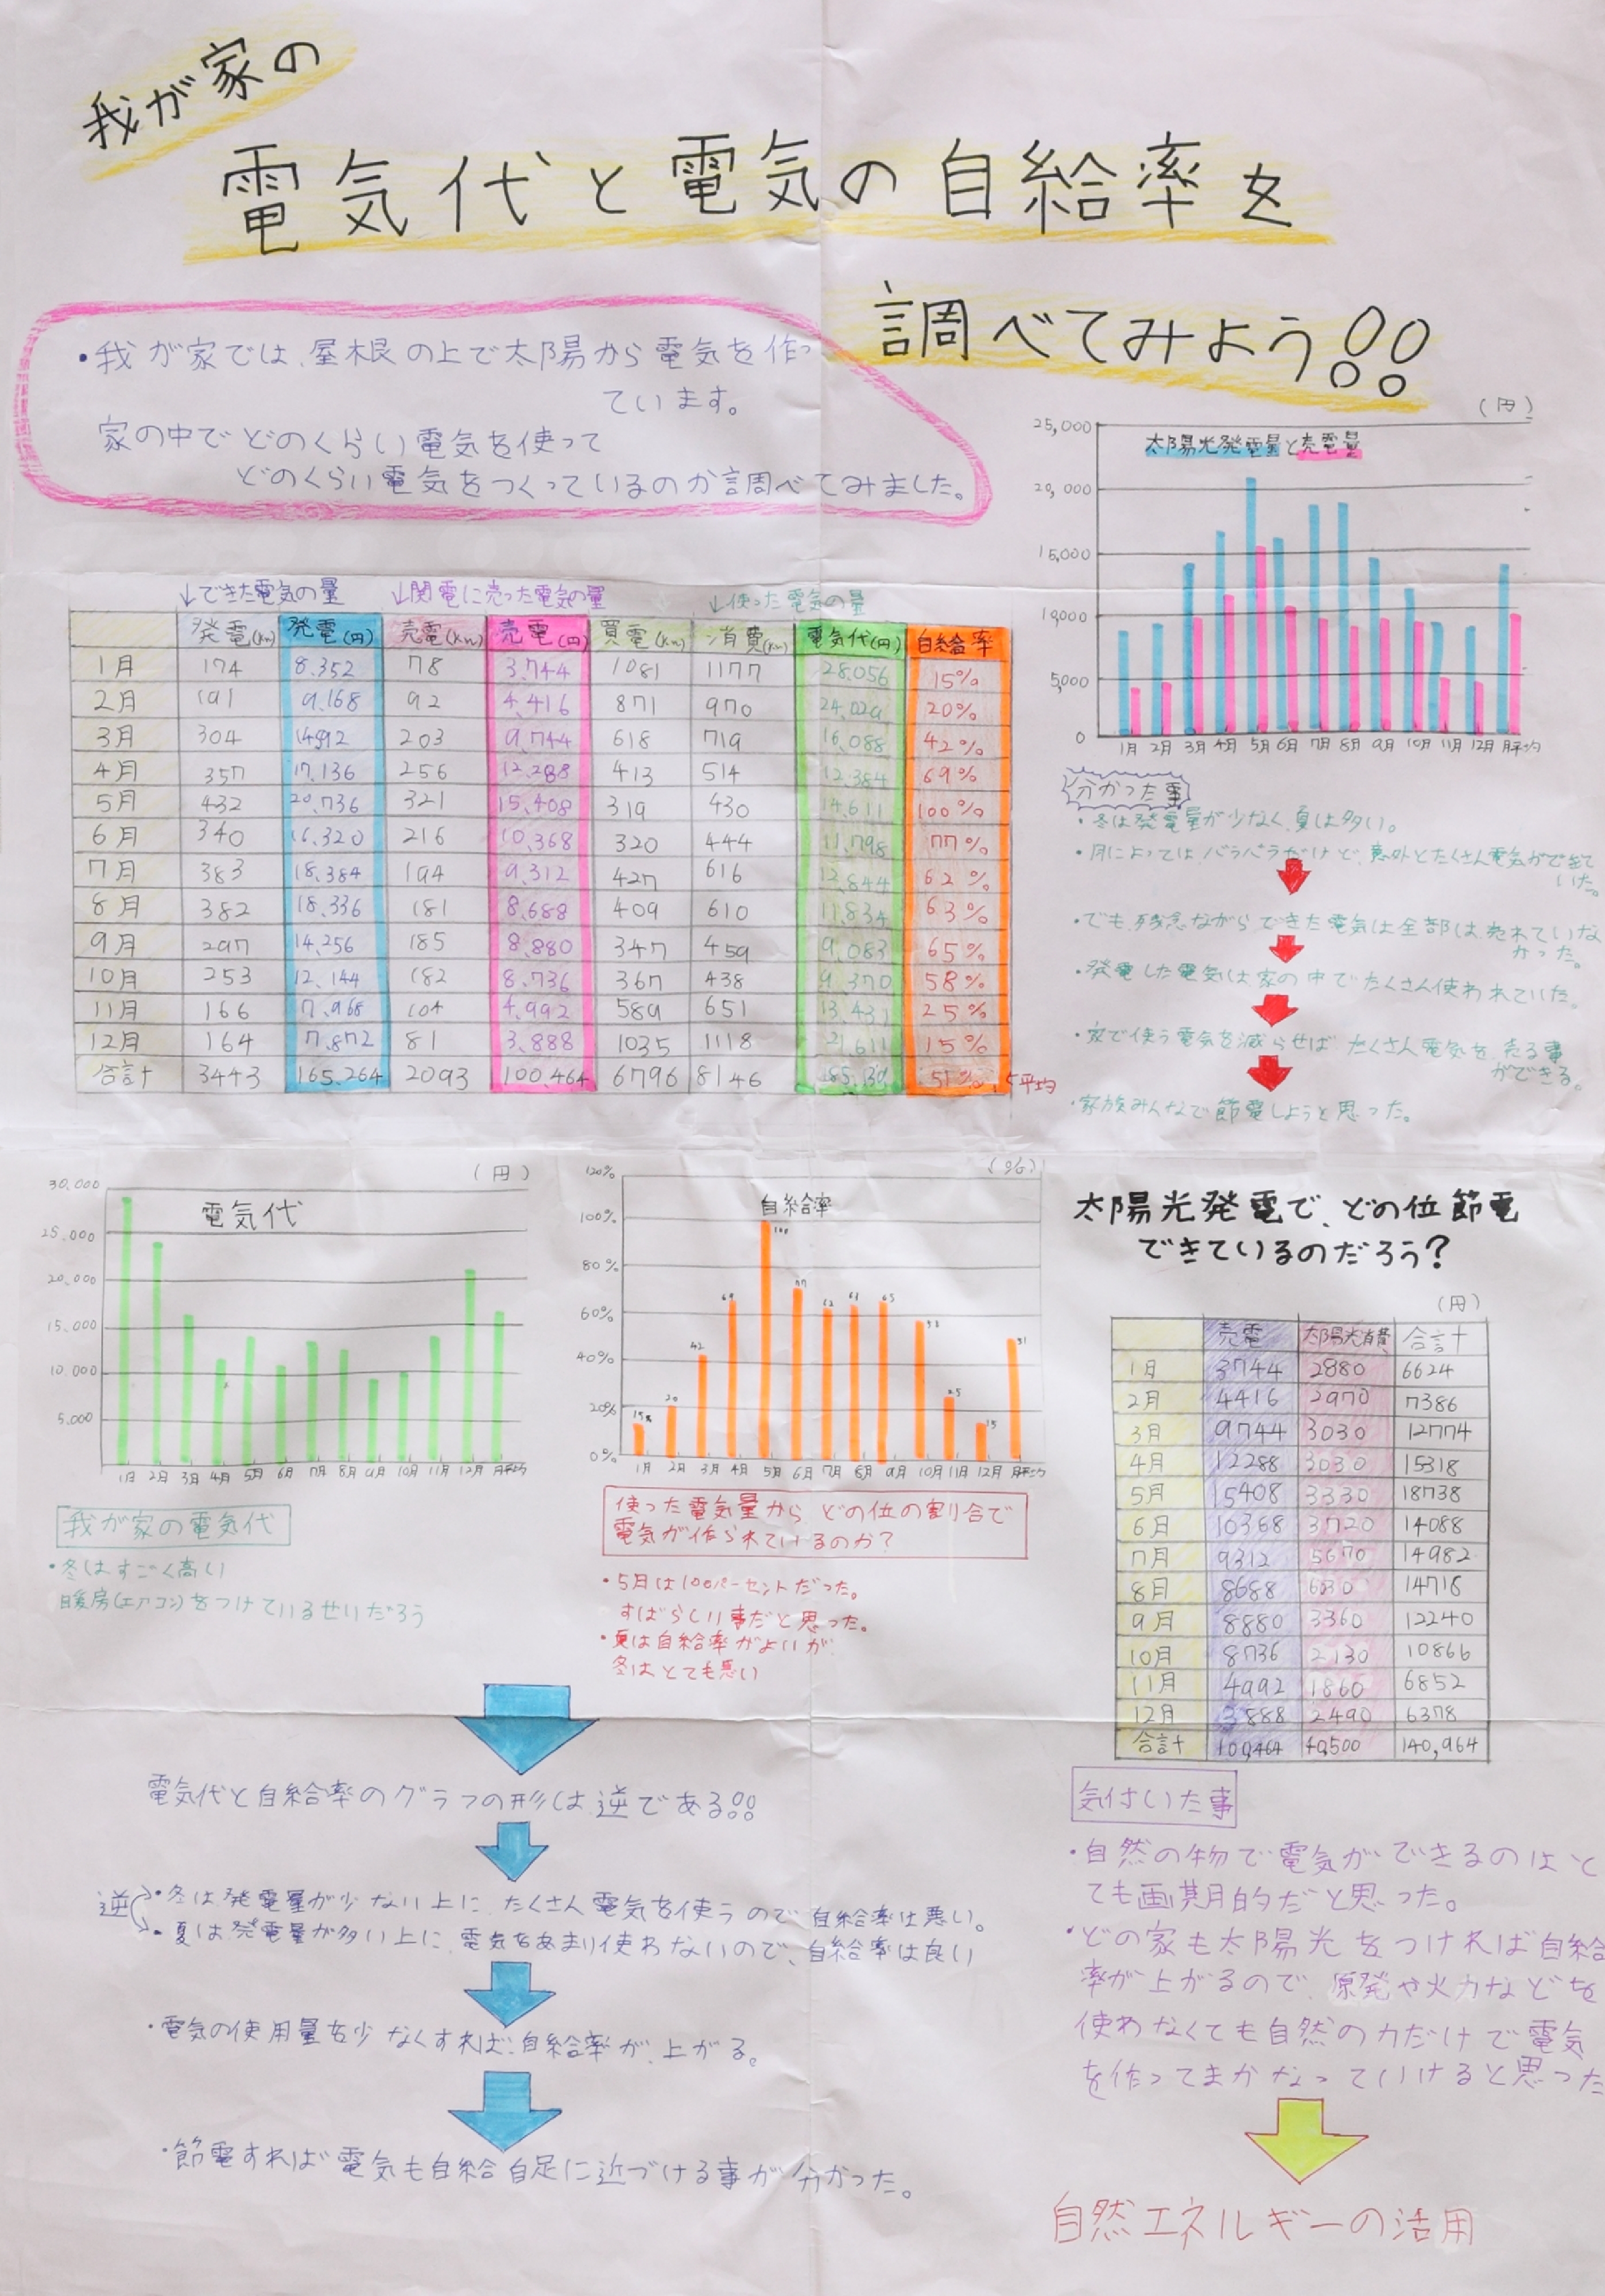 我が家の
電気代と電気の自給率を
調べてみよう!!
・我が家では、屋根の上で太陽から電気を作っ
ています。
家の中でどのくらい電気を使って
どのくらい電気をつくっているのか調べてみました。
(円)
太陽光発電量と売電量
25,000
20,000
15,000
10,000
5,000
0
1月 2月 3月 4月 5月 6月 7月 8月 9月 10月 11月 12月 月平均
↓できた電気の量 ↓関電に売った電気の量 ↓使った電気の量
発電(Kw) 発電(円) 売電(Kw) 売電(円) 買電(Kw) 消費(Kw) 電気代(円) 自給率
1月 174 8.352 78 3.744 1081 1177 28.056 15%
2月 191 9.168 92 4.416 871 970 24.029 20%
3月 304 14592 203 9.744 618 719 16.088 42%
4月 357 17.136 256 12.288 413 514 12.384 69%
5月 432 20.736 321 15.408 319 430 14.611 100%
6月 340 16.320 216 10.368 320 444 11.798 77%
7月 383 18.384 194 9.312 427 616 12.844 62%
8月 382 18.336 181 8.688 409 610 11.834 63%
9月 297 14.256 185 8.880 347 459 9.083 65%
10月 253 12.144 182 8.736 367 438 9.370 58%
11月 166 7.968 104 4.992 589 651 13.431 25%
12月 164 7.872 81 3.888 1035 1118 21.611 15%
合計 3443 165.264 2093 100.464 6796 8146 185.139 51% 平均
分かった事
・冬は発電量が少なく、夏は多い。
・月によってはバラバラだけど、意外とたくさん電気ができて
いた。
・でも、残念ながらできた電気は全部は売れていな
かった。
・発電した電気は家の中でたくさん使われていた。
・家で使う電気を減らせばたくさん電気を売る事
ができる。
・家族みんなで節電しようと思った。
(円)
電気代
30.000
25.000
20.000
15.000
10.000
5.000
1月 2月 3月 4月 5月 6月 7月 8月 9月 10月 11月 12月 月平均
(%)
自給率
120%
100%
80%
60%
40%
20%
0%
15% 20 42 69 100 77 62 63 65 58 25 15 51
1月 2月 3月 4月 5月 6月 7月 8月 9月 10月 11月 12月 月平均
我が家の電気代
・冬はすごく高い
暖房(エアコン)をつけているせいだろう
使った電気量からどの位の割合で
電気が作られているのか?
・5月は100パーセントだった。
すばらしい事だと思った。
・夏は自給率がよいが
冬はとても悪い
電気代と自給率のグラフの形は逆である!!
逆
・冬は発電量が少ない上に、たくさん電気を使うので自給率は悪い。
・夏は発電量が多い上に、電気をあまり使わないので、自給率は良い
・電気の使用量を少なくすれば、自給率が上がる。
・節電すれば電気も自給自足に近づける事が分かった。
太陽光発電で、どの位節電
できているのだろう?
(円)
売電 太陽光消費 合計
1月 3744 2880 6624
2月 4416 2970 7386
3月 9744 3030 12774
4月 12288 3030 15318
5月 15408 3330 18738
6月 10368 3720 14088
7月 9312 5670 14982
8月 8688 6030 14718
9月 8880 3360 12240
10月 8736 2130 10866
11月 4992 1860 6852
12月 3888 2490 6378
合計 100,464 40,500 140,964
気付いた事
・自然の物で電気ができるのはと
ても画期的だと思った。
・どの家も太陽光をつければ自給
率が上がるので、原発や火力などを
使わなくても自然の力だけで電気
を作ってまかなっていけると思った
自然エネルギーの活用